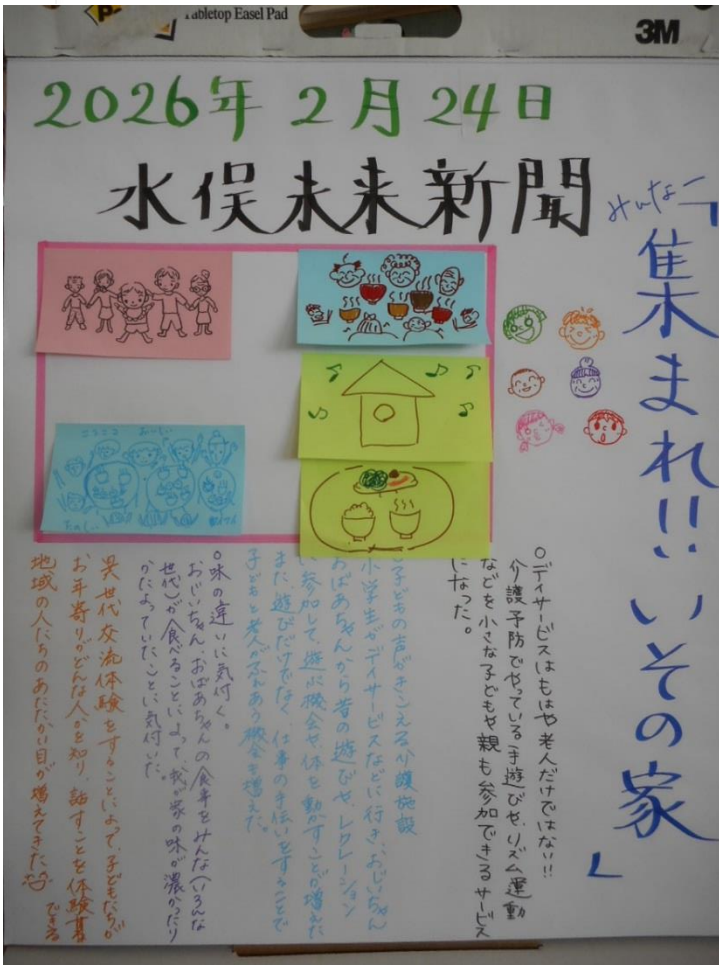 Tabletop Easel Pad
3M
2026年 2月 24日
水俣未来新聞
みんなー
「集まれ!! いその家」
○デイサービスはもはや老人だけではない!!
介護予防でやっている手遊びや、リズム運動
などを小さな子どもや親も参加できるサービス
になった。
子どもの声がきこえる介護施設
小学生がデイサービスなどに行き、おじいちゃん
おばあちゃんから昔の遊びや、レクレーション
に参加して、遊ぶ機会や、体を動かすことが増えた
また、遊びだけでなく、仕事の手伝いをすることで
子どもと老人がふれあう機会も増えた。
○味の違いに気付く。
おじいちゃん、おばあちゃんの食事をみんな(いろんな
世代)が食べることによって、我が家の味が濃かったり
かたよっていたことに気付いた。
異世代交流体験をすることによって、子どもたちが
お年寄りがどんな人かを知り、話すことを体験する
できる
地域の人たちのあたたかい目が増えてきた
ニコニコ おいしい
たのしい